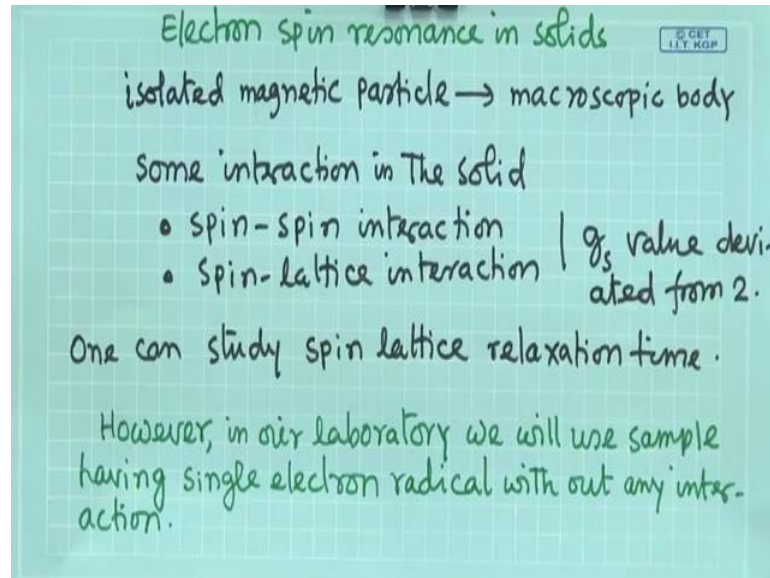 Electron spin resonance in solids
© CET
I.I.T. KGP
isolated magnetic particle → macroscopic body
Some interaction in The solid
• spin-spin interaction
• Spin-lattice interaction
| gs value devi-
ated from 2.
One can study spin lattice relaxation time.
However, in our laboratory we will use sample
having single electron radical with out any inter-
action.